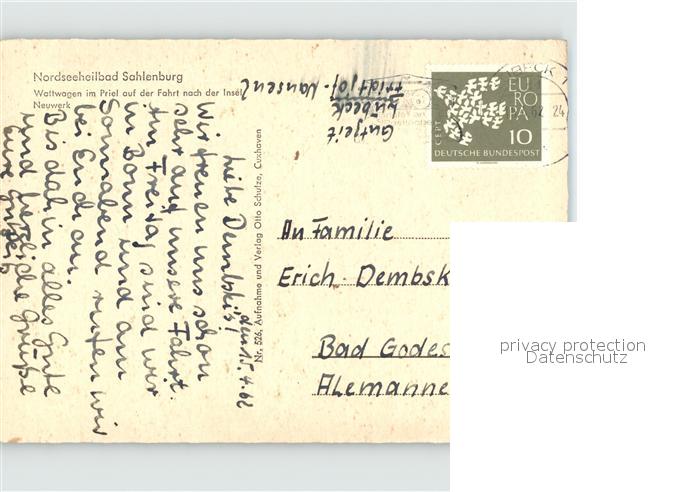 Nordseeheilbad Sahlenburg
Wattwagen im Priel auf der Fahrt nach der Insel
Neuwerk
Gutjeit
Lübeck
Fridtjof-Nansen
den 15.4.62
Liebe Dembskis!
Wir freuen uns schon
sehr auf unsere Fahrt.
Am Freitag sind wir
in Bonn und am
Sonnabend rufen wir
bei Euch an.
Bis dahin alles Gute
und herzliche Grüße
Eure
Nr. 526, Aufnahme und Verlag Otto Schulze, Cuxhaven
EU
RO
PA
CEPT
10
DEUTSCHE BUNDESPOST
BECK
An Familie
Erich Dembsk
Bad Godes
Alemanne
privacy protection
Datenschutz